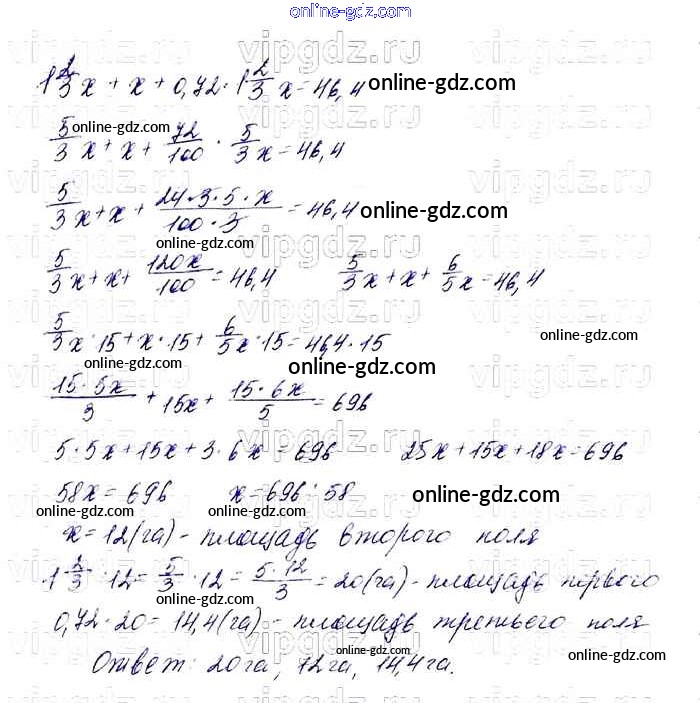 online-gdz.com
1 2/3 x + x + 0,72 · 1 2/3 x = 46,4 online-gdz.com
5/3 x + x + 72/100 · 5/3 x = 46,4
online-gdz.com
5/3 x + x + (24·3·5·x)/(100·3) = 46,4 online-gdz.com
online-gdz.com
5/3 x + x + 120x/100 = 46,4 5/3 x + x + 6/5 x = 46,4
5/3 x · 15 + x · 15 + 6/5 x · 15 = 46,4 · 15
online-gdz.com online-gdz.com online-gdz.com
(15·5x)/3 + 15x + (15·6x)/5 = 696
5·5x + 15x + 3·6x = 696 25x + 15x + 18x = 696
58x = 696 x = 696 : 58 online-gdz.com
online-gdz.com online-gdz.com
x = 12 (га) - площадь второго поля
1 2/3 · 12 = 5/3 · 12 = (5·12)/3 = 20 (га) - площадь первого
online-gdz.com
0,72 · 20 = 14,4 (га) - площадь третьего поля
Ответ: 20 га, 72 га, 14,4 га.
online-gdz.com online-gdz.com
vipgdz.ru